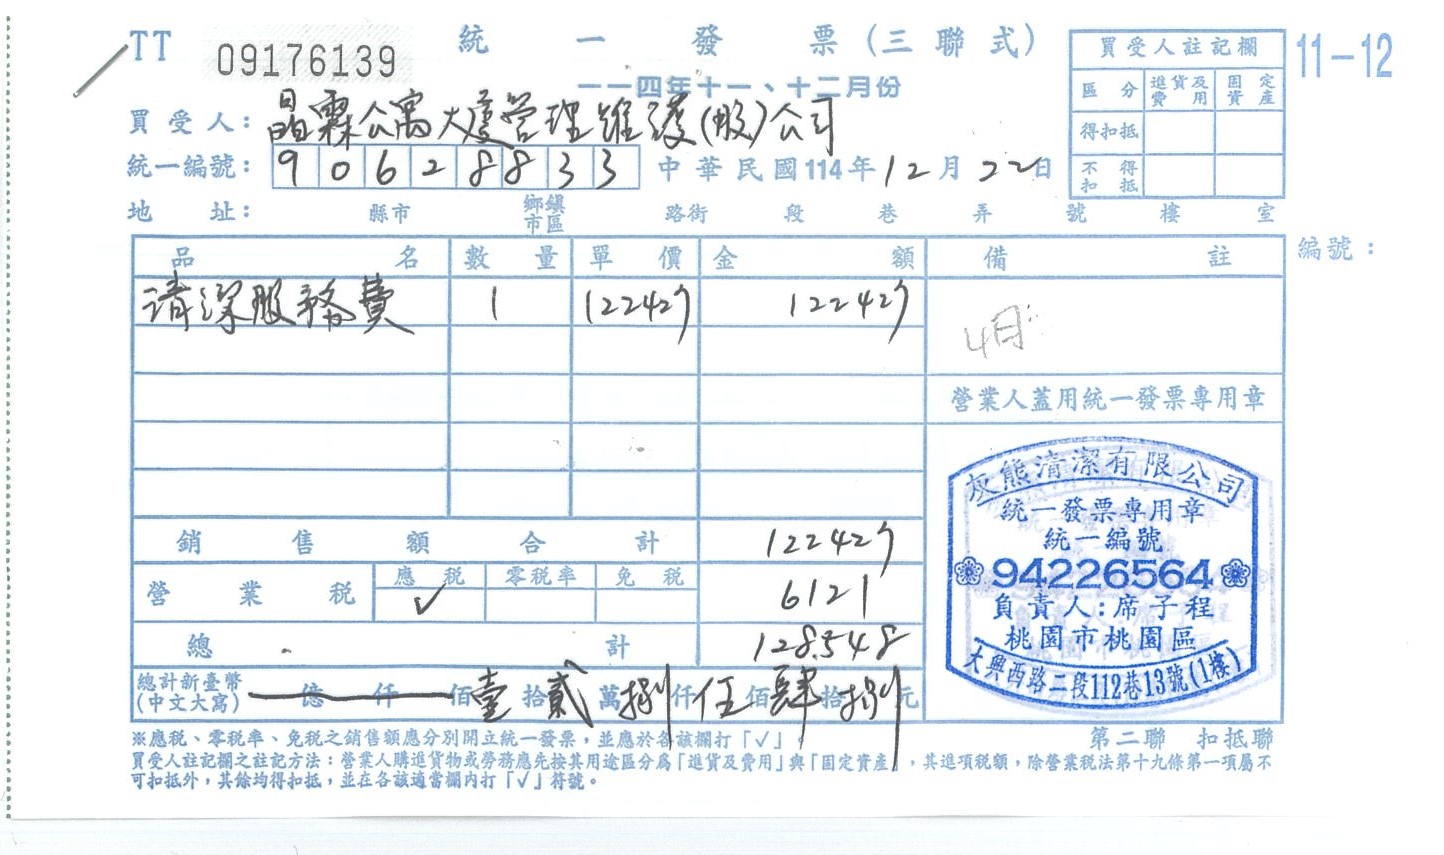 TT 09176139 統一發票(三聯式) 11-12
一一四年十一、十二月份
買受人: 晶霖公寓大廈管理維護(股)公司
統一編號: 90628833 中華民國114年12月22日
地址: 縣市 鄉鎮市區 路街 段 巷 弄 號 樓 室
買受人註記欄
區分 進貨及費用 固定資產
得扣抵
不得扣抵
編號:
品名 數量 單價 金額 備註
清潔服務費 1 122427 122427
4月
營業人蓋用統一發票專用章
銷售額合計 122427
營業稅 應稅 ✓ 零稅率 免稅 6121
總計 128548
總計新臺幣(中文大寫) 億 仟 佰 壹 拾 貳 萬 捌 仟 伍 佰 肆 拾 捌 元
灰熊清潔有限公司
統一發票專用章
統一編號
94226564
負責人:席子程
桃園市桃園區
大興西路二段112巷13號(1樓)
第二聯 扣抵聯
※應稅、零稅率、免稅之銷售額應分別開立統一發票,並應於各該欄打「✓」。
買受人註記欄之註記方法:營業人購進貨物或勞務應先按其用途區分爲「進貨及費用」與「固定資產」,其進項稅額,除營業稅法第十九條第一項屬不
可扣抵外,其餘均得扣抵,並在各該適當欄內打「✓」符號。